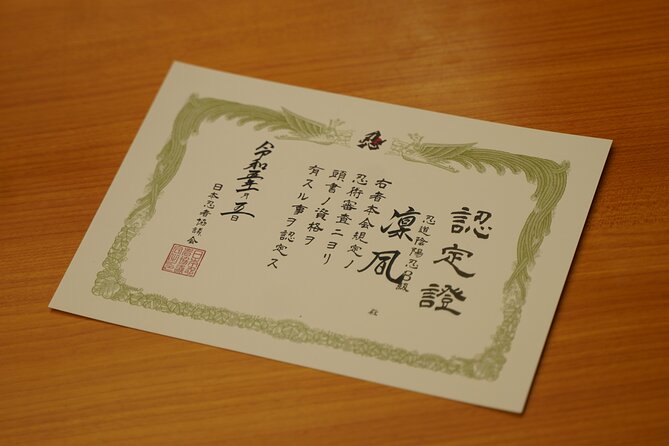 認定證
忍道陰陽忍B級
凛風
殿
右者本会規定ノ
忍術審査ニヨリ
頭書ノ資格ヲ
有スル事ヲ認定ス
令和五年 月五日
日本忍者協議会